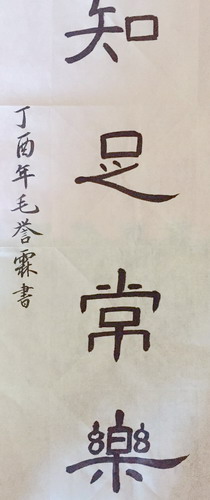 知足常樂
丁酉年毛誉霖書